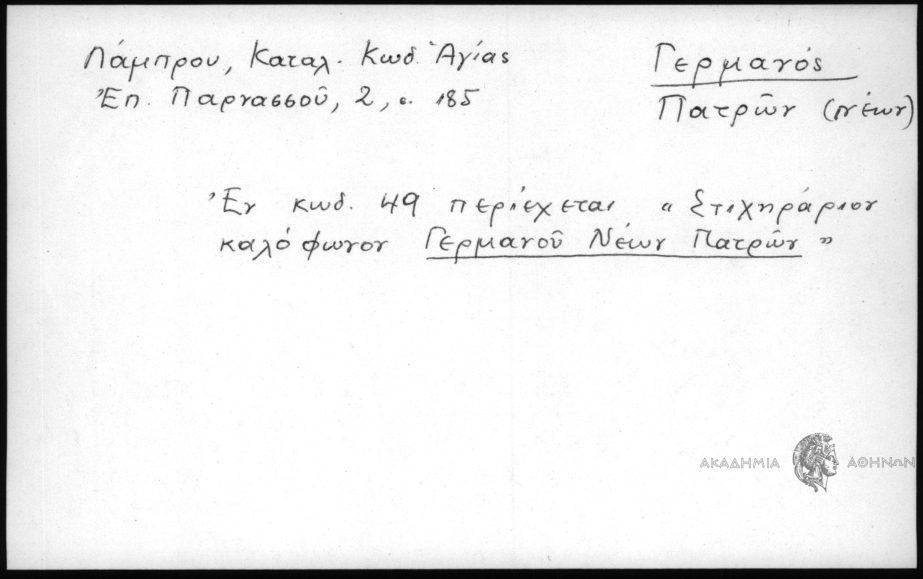 Λάμπρου, Καταλ. Κωδ. Ἁγίας
Ἐπ. Παρνασσοῦ, 2, σ. 185
Γερμανός
Πατρῶν (νέων)
Ἐν κωδ. 49 περιέχεται "Στιχηράριον
καλόφωνον Γερμανοῦ Νέων Πατρῶν"
ΑΚΑΔΗΜΙΑ ΑΘΗΝΩΝ